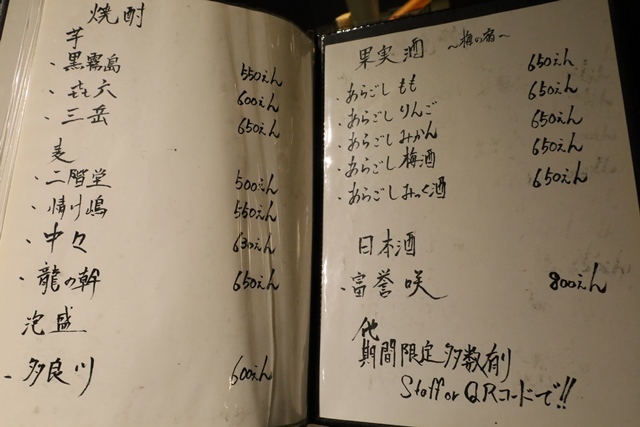 焼酎
芋
・黒霧島 550えん
・㐂六 600えん
・三岳 650えん
麦
・二階堂 500えん
・情け嶋 550えん
・中々 630えん
・龍の幹 650えん
泡盛
・多良川 600えん
果実酒 ～梅の宿～
・あらごしもも 650えん
・あらごしりんご 650えん
・あらごしみかん 650えん
・あらごし梅酒 650えん
・あらごしみっくす酒 650えん
日本酒
・富誉咲 800えん
他
期間限定多数有り
Staff or QRコードで!!